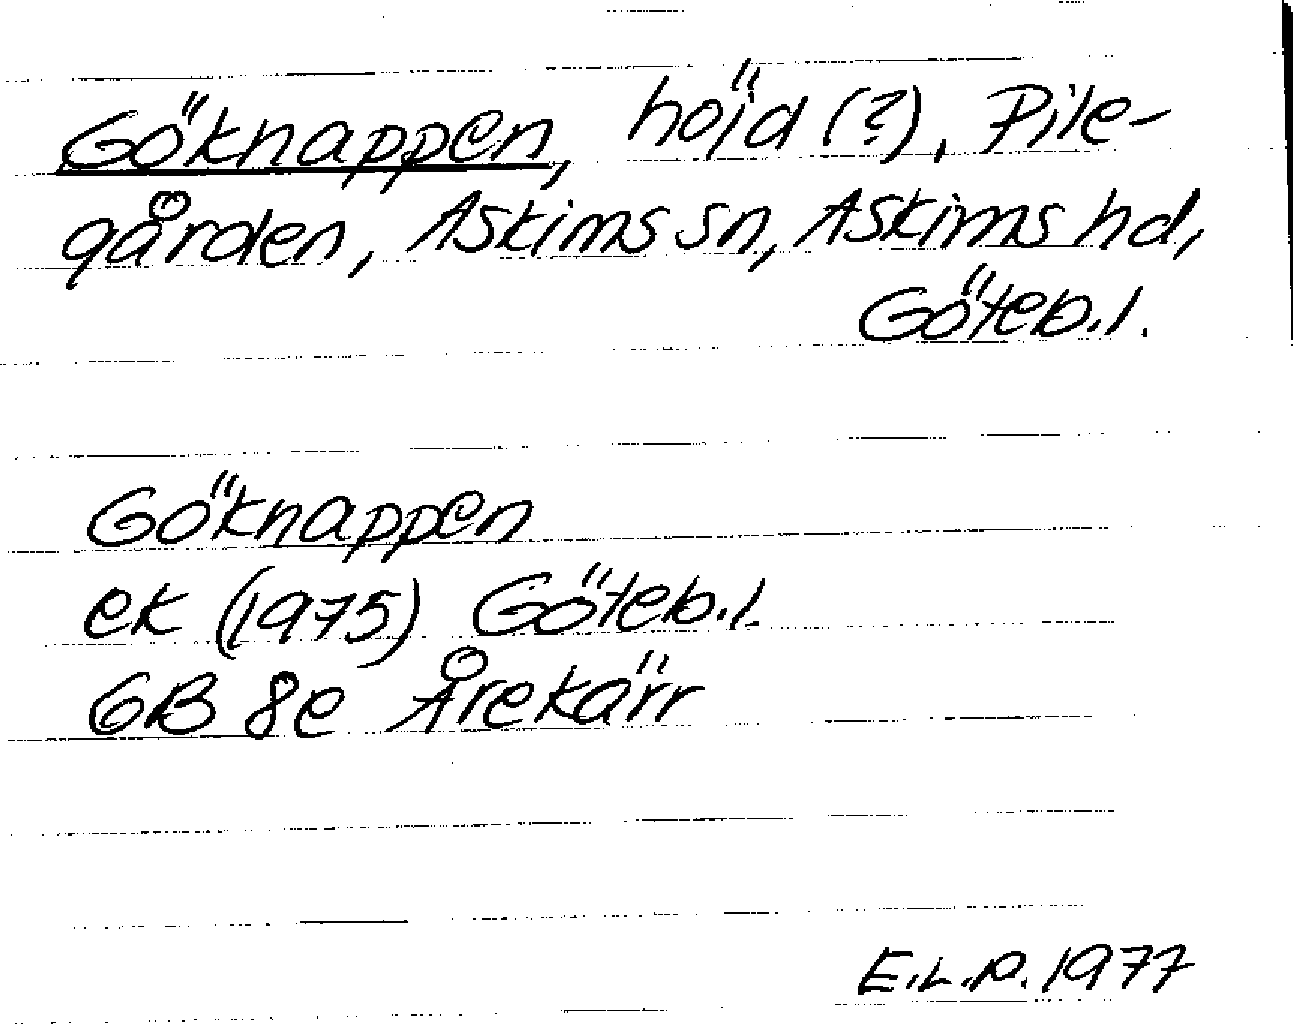 Göknappen, höjd (?), Pile-
gården, Askims sn, Askims hd,
Göteb.l.
Göknappen
ek (1975) Göteb.l.
GB 8e Årekärr
E.L.P. 1977